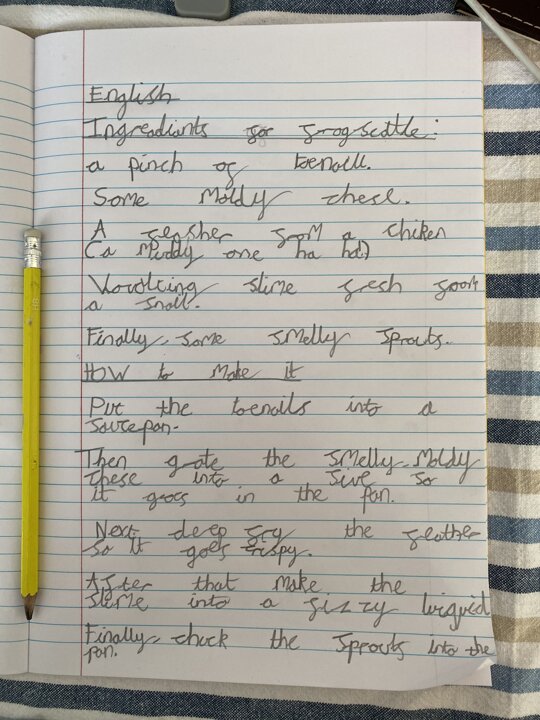 English
Ingreadiants for frogscottle:
a pinch of toenail.
Some Moldy chese.
A feather from a chiken
(a Muddy one ha ha!)
slime fresh from
a snail.
Finally, some smelly sprouts.
How to Make it
Put the toenails into a
saucepan.
Then grate the smelly, Moldy
chese into a sive so
it goes in the pan.
Next deep fry the feather
so it goes crispy.
After that make the
slime into a fizzy liquid
Finally, chuck the sprouts into the
pan.